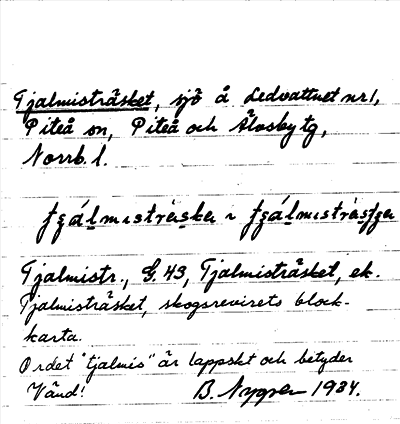 Tjalmisträsket, sjö å Ledvattnet nr 1,
Piteå sn, Piteå och Älvsby tg,
Norrb. l.
i
Tjalmistr., G. 43, Tjalmisträsket, ek.
Tjalmisträsket, skogsrevirets block-
karta.
Ordet "tjalmis" är lappskt och betyder
Vänd! B. Nygren 1934.